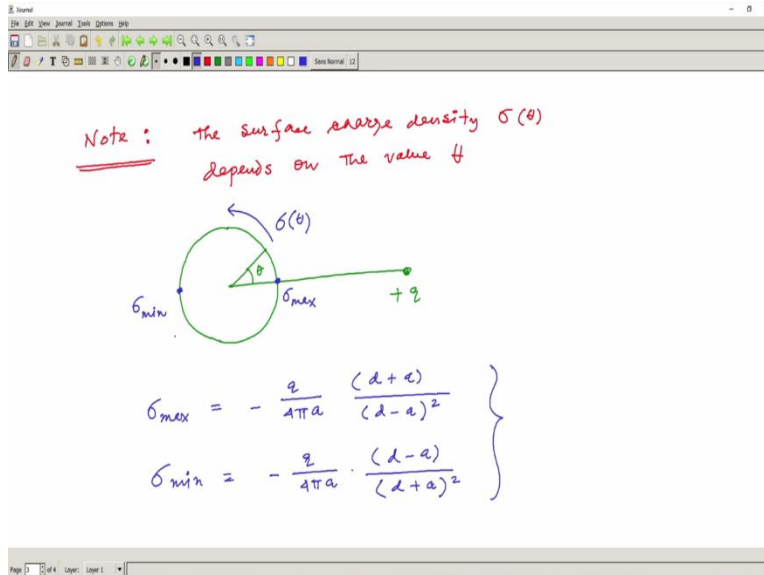 Xournal
File Edit View Journal Tools Options Help
Sans Normal 12
Note : The surface charge density σ(θ)
depends on the value θ
σ(θ)
θ
σmin
σmax
+q
σmax = - q/4πa (d+a)/(d-a)²
σmin = - q/4πa · (d-a)/(d+a)²
Page 3 of 4 Layer: Layer 1